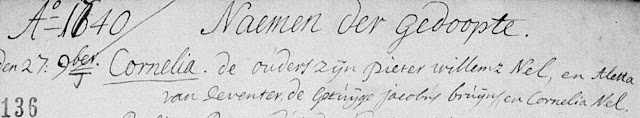 A:o 1640 Naemen der gedoopte.
den 27. 9ber. Cornelia. de ouders zijn pieter willemz Nel, en Aletta
van deventer, de Getuijge jacobus bruijns en Cornelia Nel.
136